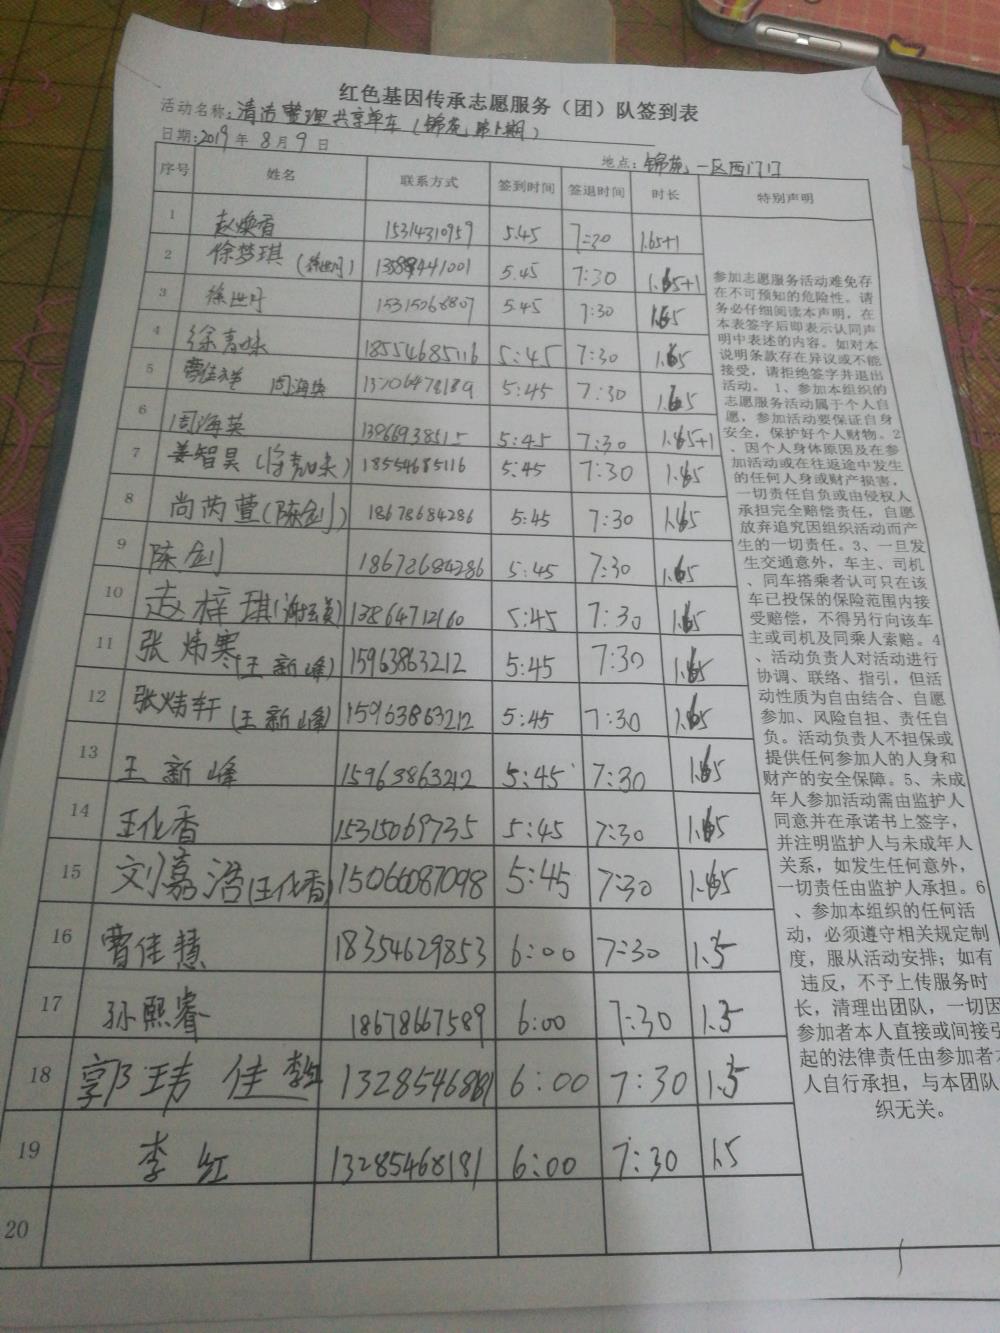 红色基因传承志愿服务（团）队签到表
活动名称：清洁整理共享单车（锦苑第卜期）
日期：2019年8月9日
地点：锦苑一区西门口
序号 姓名 联系方式 签到时间 签退时间 时长 特别声明
1 赵焕香 15314310959 5:45 7:30 1.65+1
2 徐梦琪（徐世丹） 5:45 7:30 1.65+1
3 徐世丹 15315066807 5:45 7:30 1.65
4 徐青妹 18554685116 5:45 7:30 1.65
5 周海英 13706478189 5:45 7:30 1.65
6 周海英 13966938515 5:45 7:30 1.65+1
7 姜智昊 18554685116 5:45 7:30 1.65
8 尚芮萱（陈剑） 18678684286 5:45 7:30 1.65
9 陈剑 18678684286 5:45 7:30 1.65
10 赵梓琪 13864712160 5:45 7:30 1.65
11 张炜寒（王新峰） 15963863212 5:45 7:30 1.65
12 张炜轩（王新峰） 15963863212 5:45 7:30 1.65
13 王新峰 15963863212 5:45 7:30 1.65
14 王化香 15315069735 5:45 7:30 1.65
15 刘嘉浩（王化香） 15066087098 5:45 7:30 1.65
16 曹佳慧 18354629853 6:00 7:30 1.5
17 孙熙睿 18678667589 6:00 7:30 1.5
18 郭玮佳 李红 6:00 7:30 1.5
19 李红 13285468181 6:00 7:30 1.5
20
参加志愿服务活动难免存
在不可预知的危险性。请
务必仔细阅读本声明，在
本表签字后即表示认同声
明中表述的内容。如对本
说明条款存在异议或不能
接受，请拒绝签字并退出
活动。1、参加本组织的
志愿服务活动属于个人自
愿，参加活动要保证自身
安全，保护好个人财物。2
、因个人身体原因及在参
加活动或在往返途中发生
的任何人身或财产损害，
一切责任自负或由侵权人
承担完全赔偿责任，自愿
放弃追究因组织活动而产
生的一切责任。3、一旦发
生交通意外，车主、司机
、同车搭乘者认可只在该
车已投保的保险范围内接
受赔偿，不得另行向该车
主或司机及同乘人索赔。4
、活动负责人对活动进行
协调、联络、指引，但活
动性质为自由结合、自愿
参加、风险自担、责任自
负。活动负责人不担保或
提供任何参加人的人身和
财产的安全保障。5、未成
年人参加活动需由监护人
同意并在承诺书上签字，
并注明监护人与未成年人
关系，如发生任何意外，
一切责任由监护人承担。6
、参加本组织的任何活
动，必须遵守相关规定制
度，服从活动安排；如有
违反，不予上传服务时
长，清理出团队，一切因
参加者本人直接或间接引
起的法律责任由参加者本
人自行承担，与本团队
织无关。